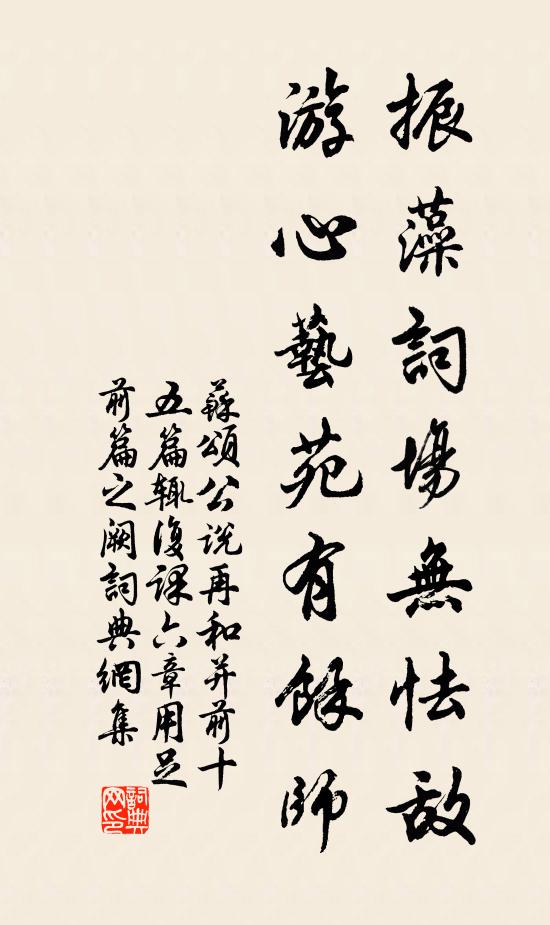 振藻詞場無怯敵
游心藝苑有餘師
蘇頌公说再和并前十
五篇辄復课六章用足
前篇之阙詞典網集
詞典
网印